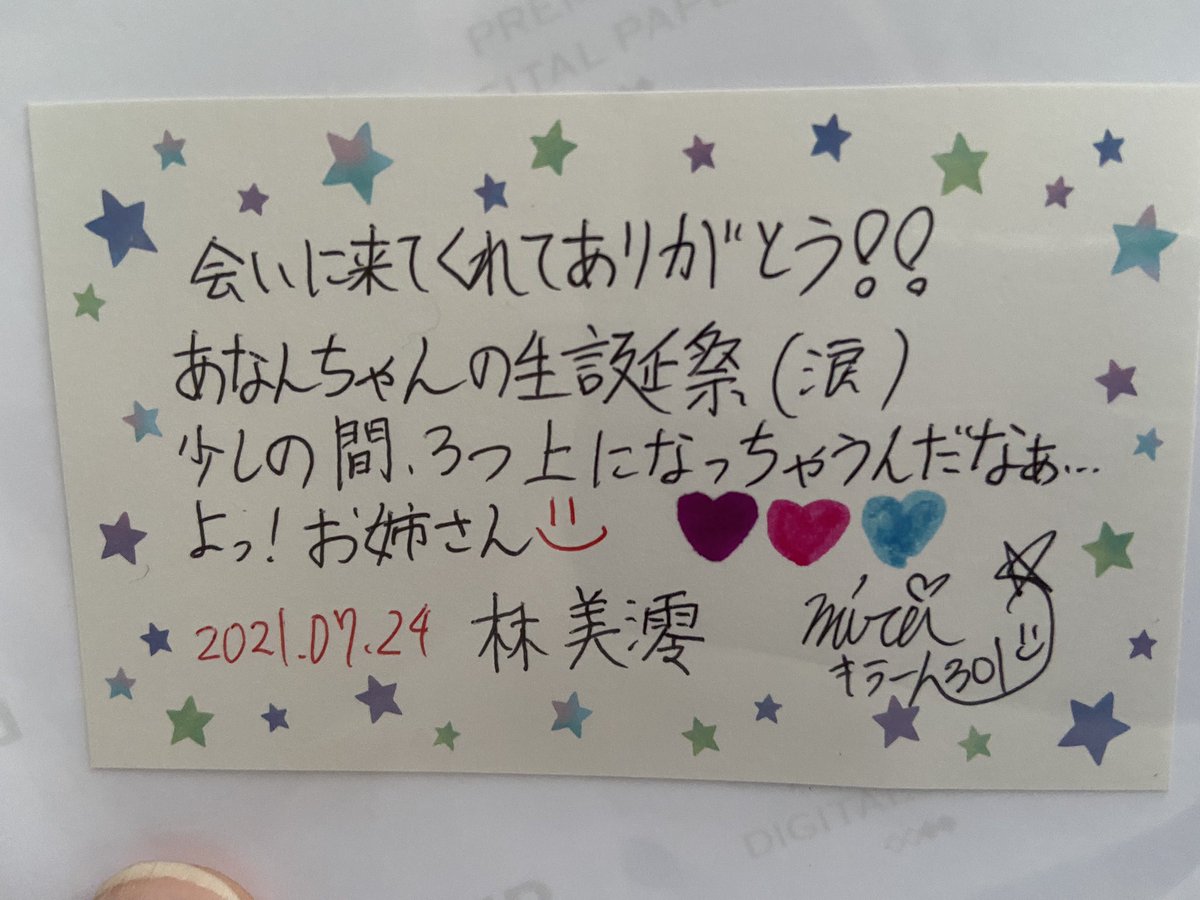 PREM
DIGITAL PAPE
会いに来てくれてありがとう!!
あなんちゃんの生誕祭(涙)
少しの間、3つ上になっちゃうんだなぁ…
よっ!お姉さん
2021.07.24 林美澪 mirei
キラーん301
DIGITAL